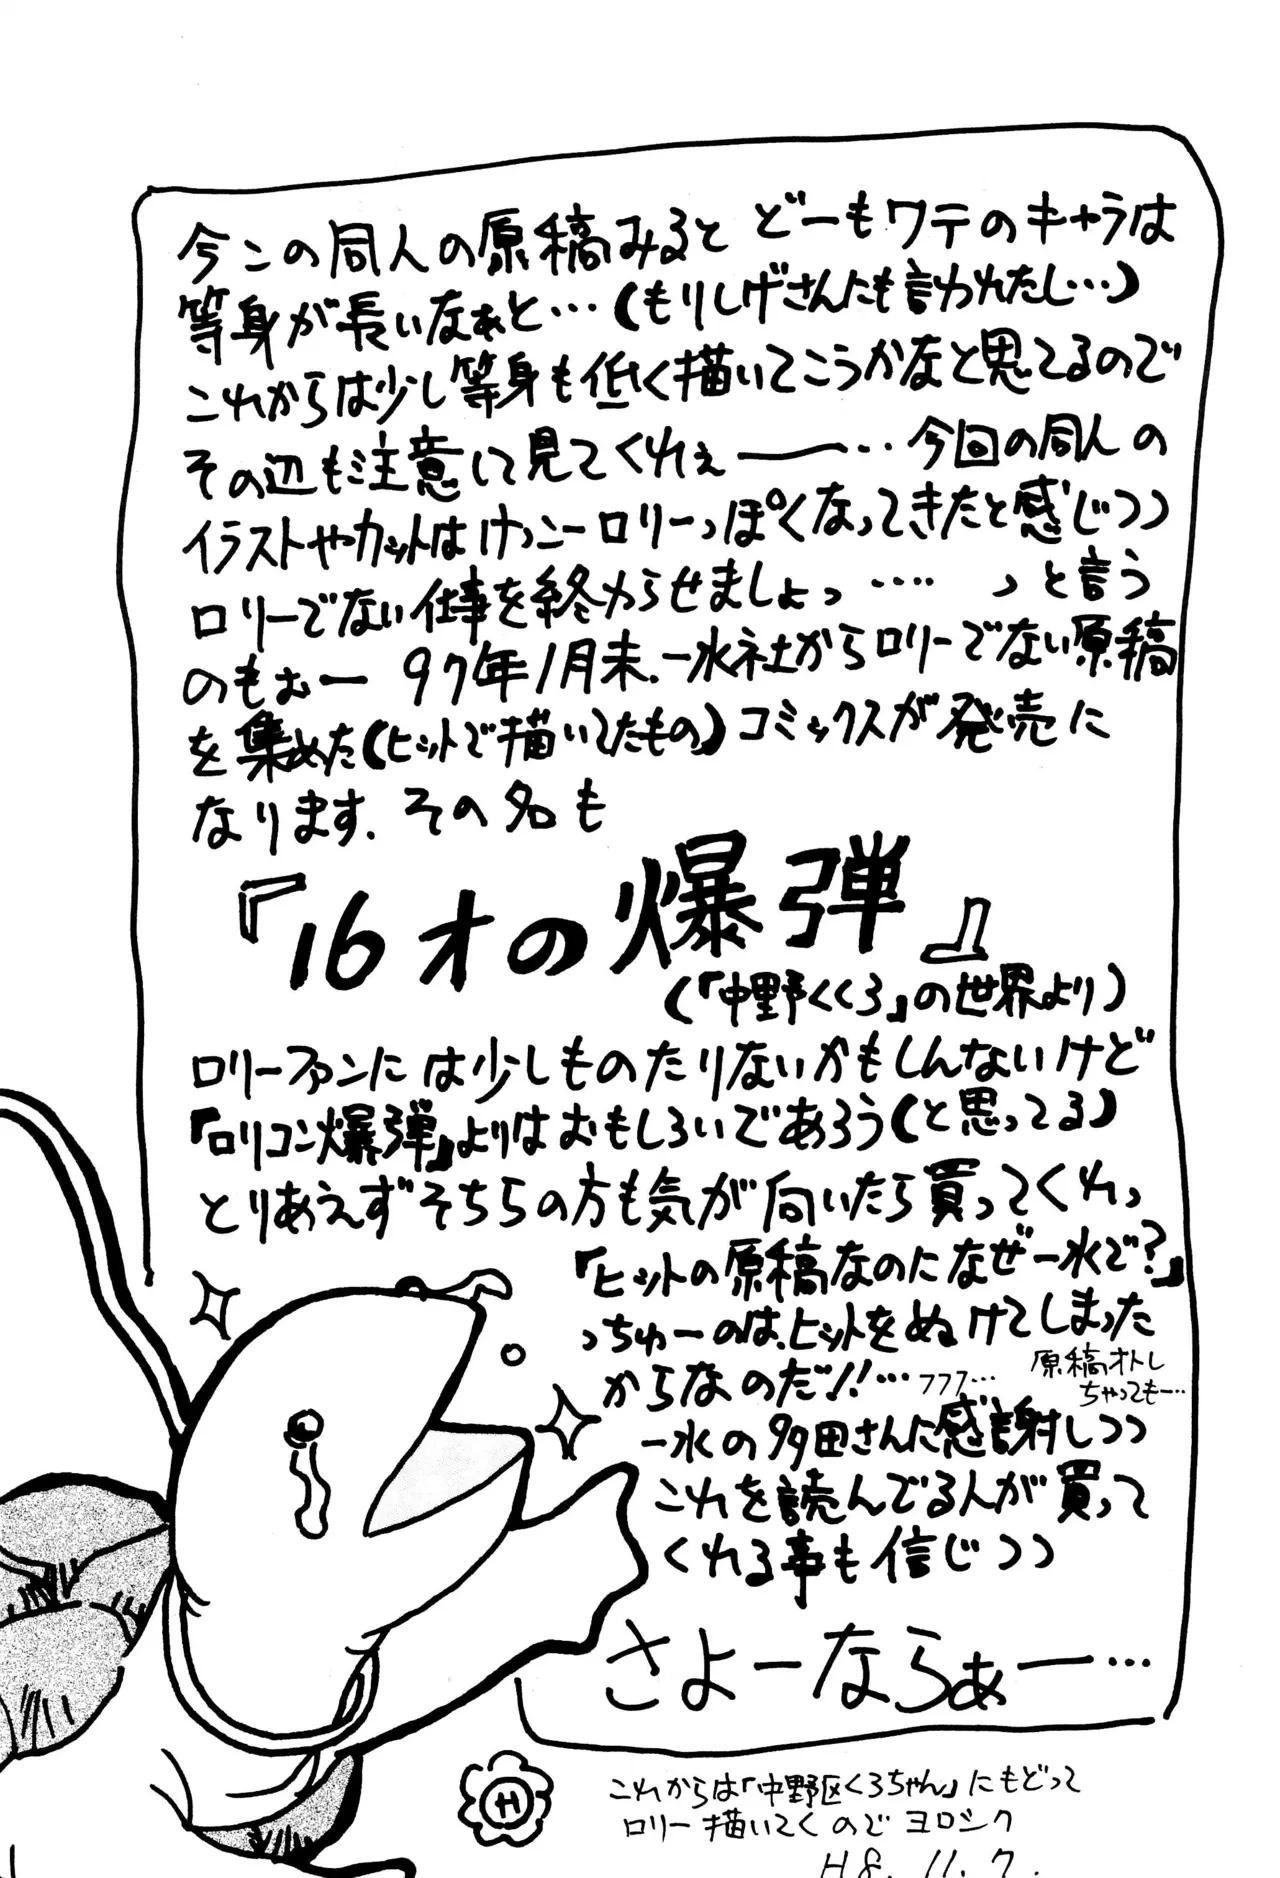 今この同人の原稿みると どーもワテのキャラは
等身が長いなぁと…(もりしげさんにも言われたし…)
これからは少し等身も低く描いてこうかなと思てるので
その辺も注意して見てくれぇ――…今回の同人の
イラストやカットはけっこーロリーっぽくなってきたと感じつつ
ロリーでない仕事を終わらせましょっ…‥ っと言う
のもぉー 97年1月末.一水社からロリーでない原稿
を集めた(ヒットで描いてたもの)コミックスが発売に
なります.その名も
『16才の爆弾』
(「中野くくろ」の世界より)
ロリーファンには少しものたりないかもしんないけど
『ロリコン爆弾』よりはおもしろいであろう(と思ってる)
とりあえずそちらの方も気が向いたら買ってくれっ
「ヒットの原稿なのになぜ一水で?」
っちゅーのは、ヒットをぬけてしまった
からなのだ!!…フフフ…
原稿オトし
ちゃってもー…
一水の多田さんに感謝しつつ
これを読んでる人が買って
くれる事も信じつつ
さよーならぁー…
これからは「中野区くろちゃん」にもどって
ロリー描いてくのでヨロシク
H8.11.7.
H